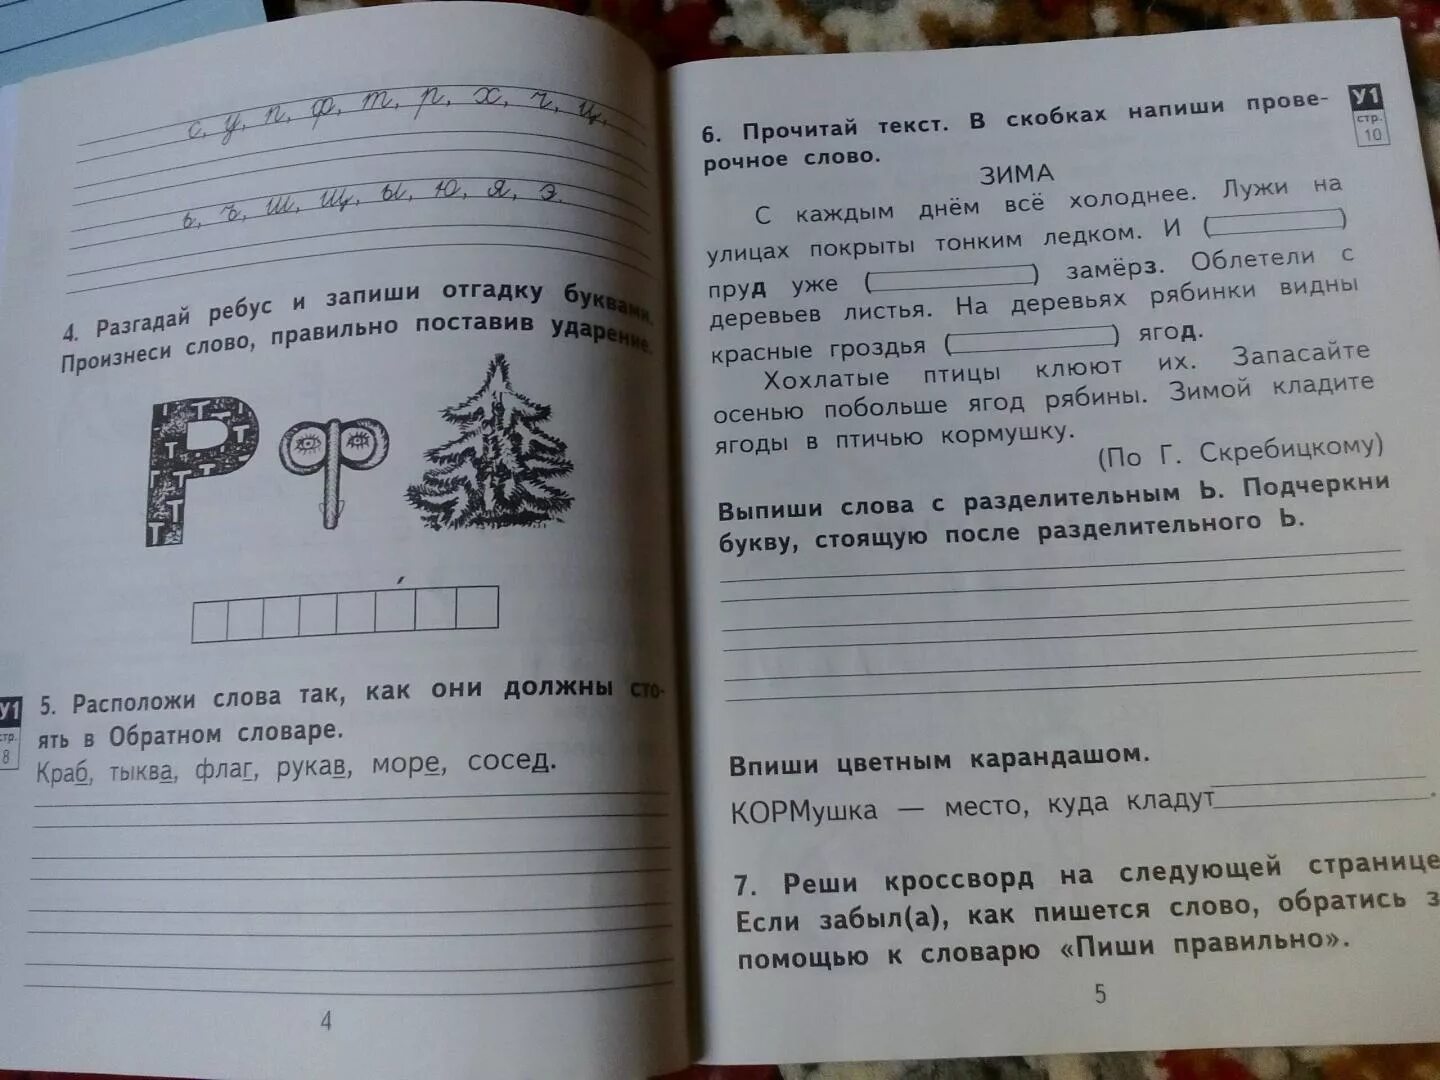 с, у, п, ф, т, р, х, ч, ц,
ь, ъ, ш, щ, ы, ю, я, э.
4. Разгадай ребус и запиши отгадку буквами.
Произнеси слово, правильно поставив ударение.
5. Расположи слова так, как они должны сто-
ять в Обратном словаре.
Краб, тыква, флаг, рукав, море, сосед.
У1
стр.
8
4
6. Прочитай текст. В скобках напиши прове-
рочное слово.
У1
стр.
10
ЗИМА
С каждым днём всё холоднее. Лужи на
улицах покрыты тонким ледком. И ( )
пруд уже ( ) замёрз. Облетели с
деревьев листья. На деревьях рябинки видны
красные гроздья ( ) ягод.
Хохлатые птицы клюют их. Запасайте
осенью побольше ягод рябины. Зимой кладите
ягоды в птичью кормушку.
(По Г. Скребицкому)
Выпиши слова с разделительным Ь. Подчеркни
букву, стоящую после разделительного Ь.
Впиши цветным карандашом.
КОРМушка — место, куда кладут .
7. Реши кроссворд на следующей странице
Если забыл(а), как пишется слово, обратись з
помощью к словарю «Пиши правильно».
5